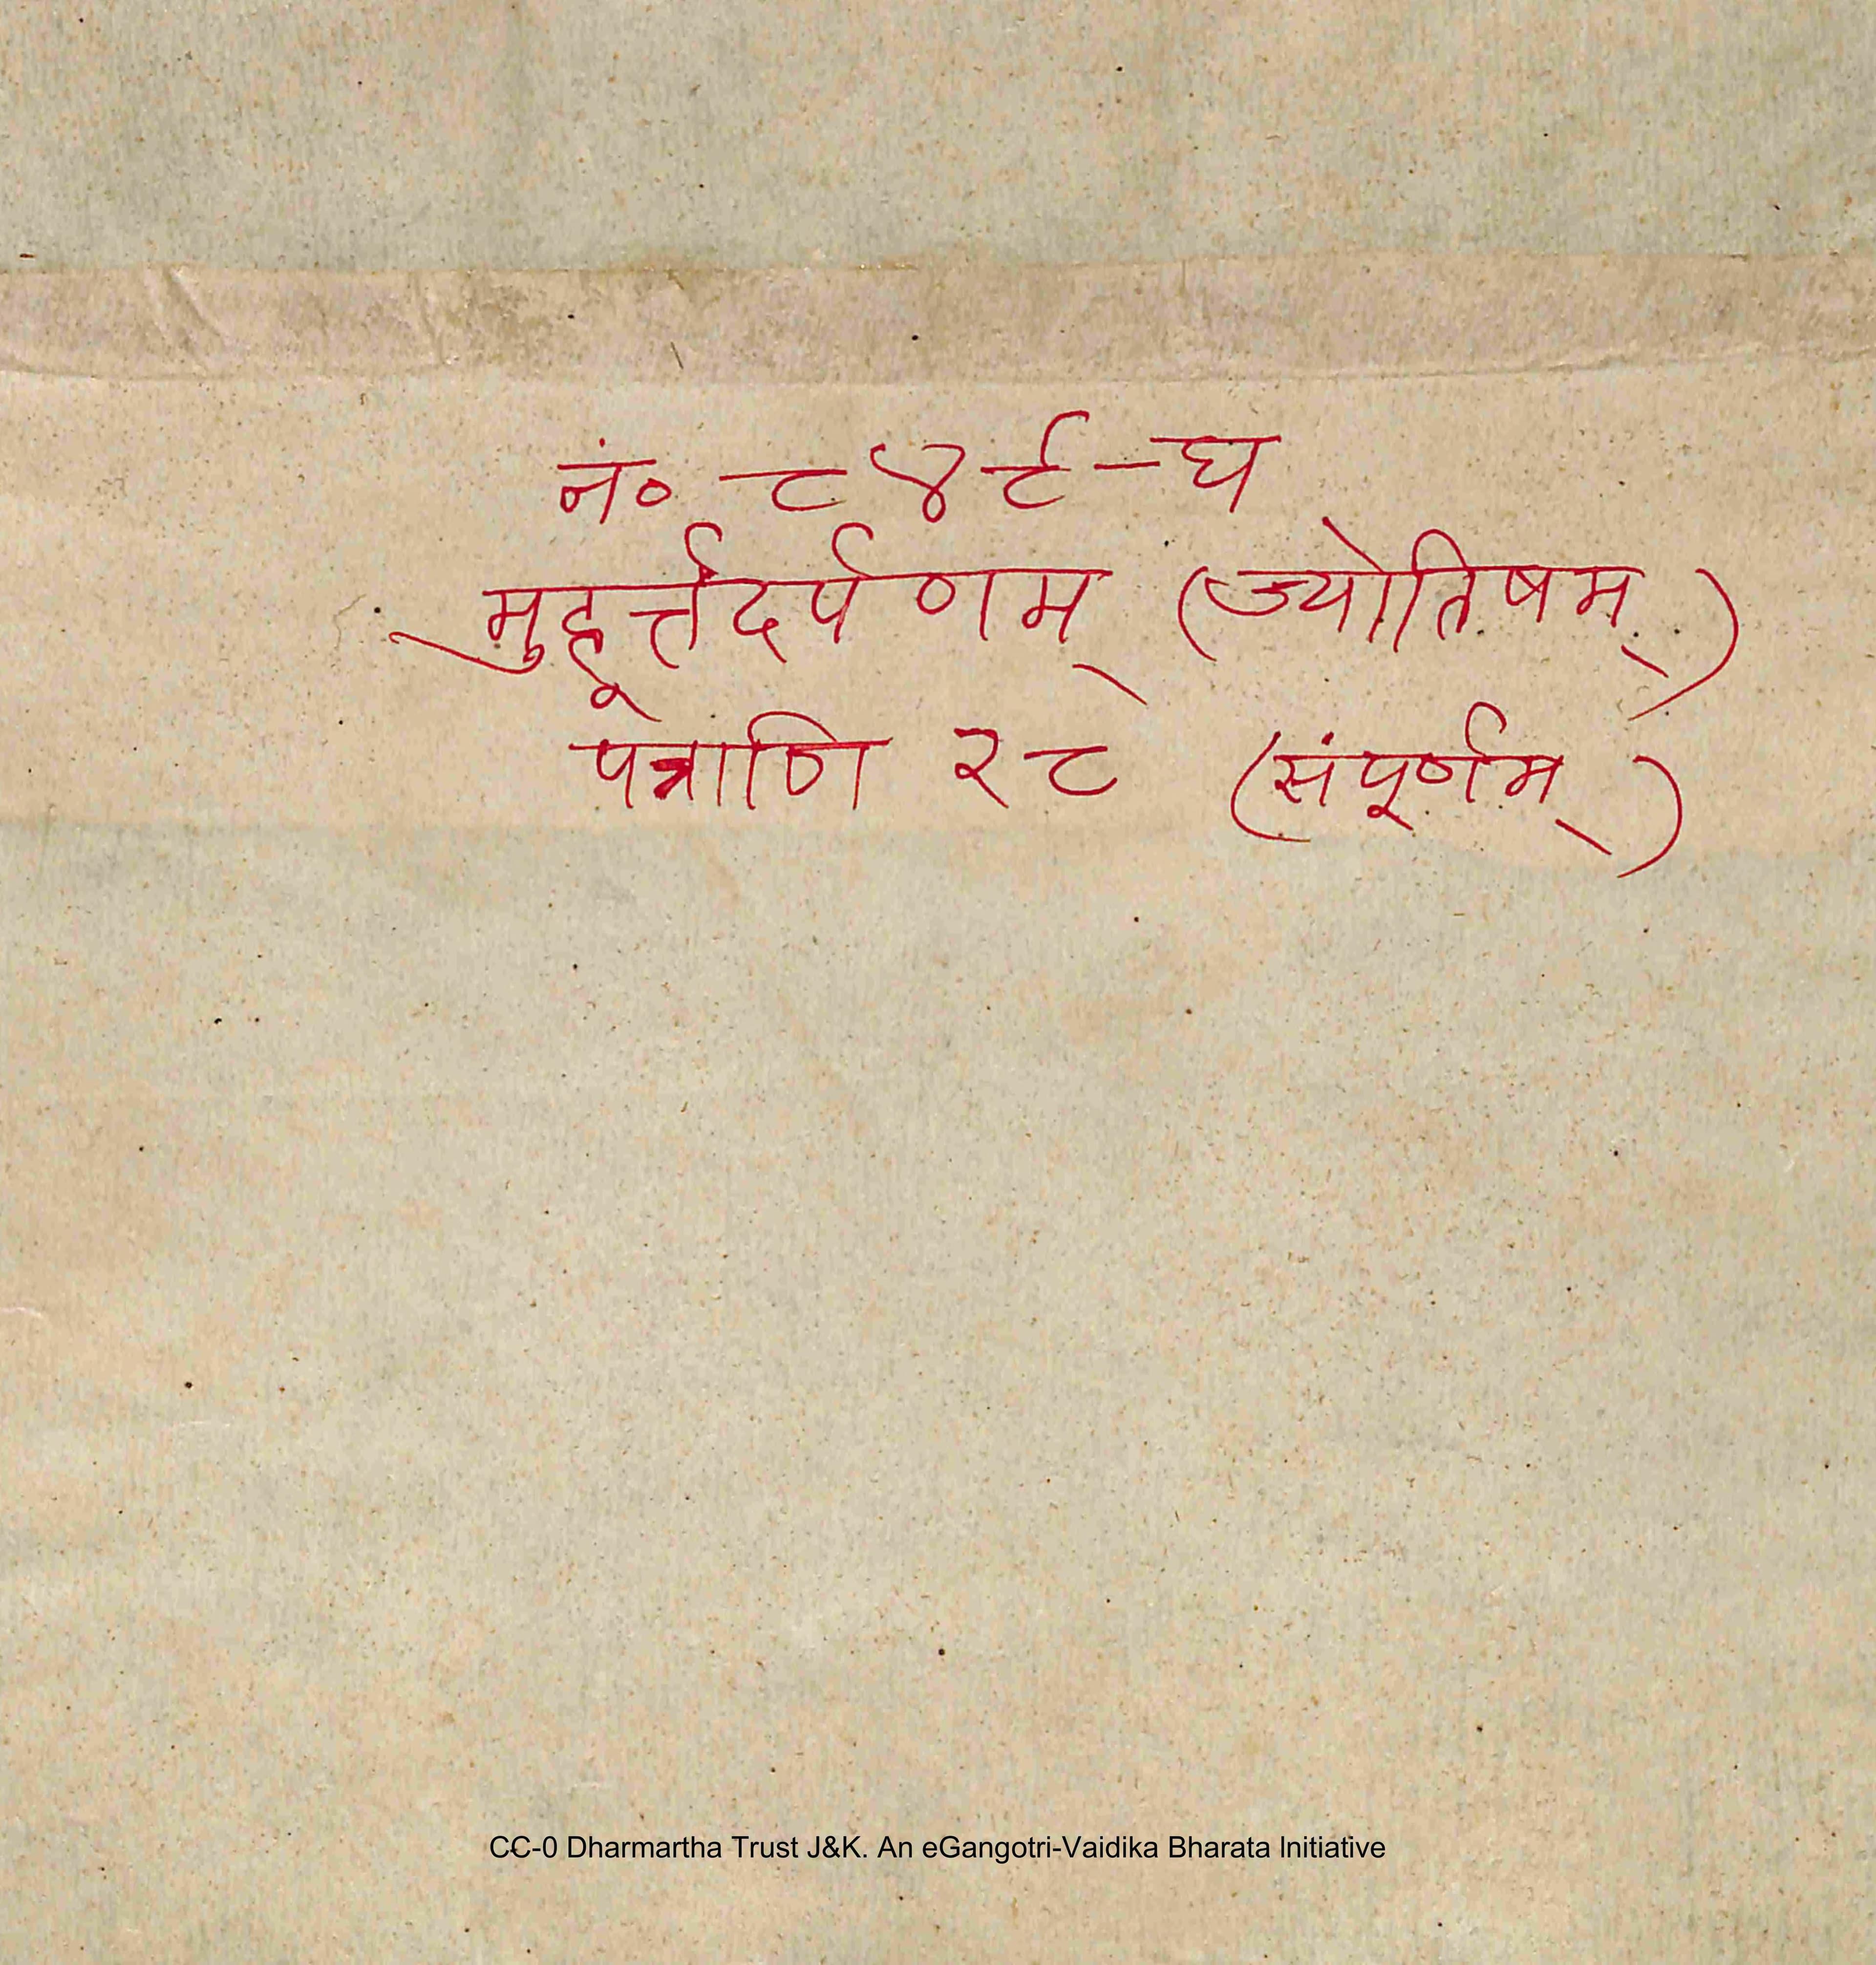 नं० ८४९-घ
मुहूर्त्तदर्पणम् (ज्योतिषम्)
पत्राणि २८ (संपूर्णम्)
CC-0 Dharmartha Trust J&K. An eGangotri-Vaidika Bharata Initiative